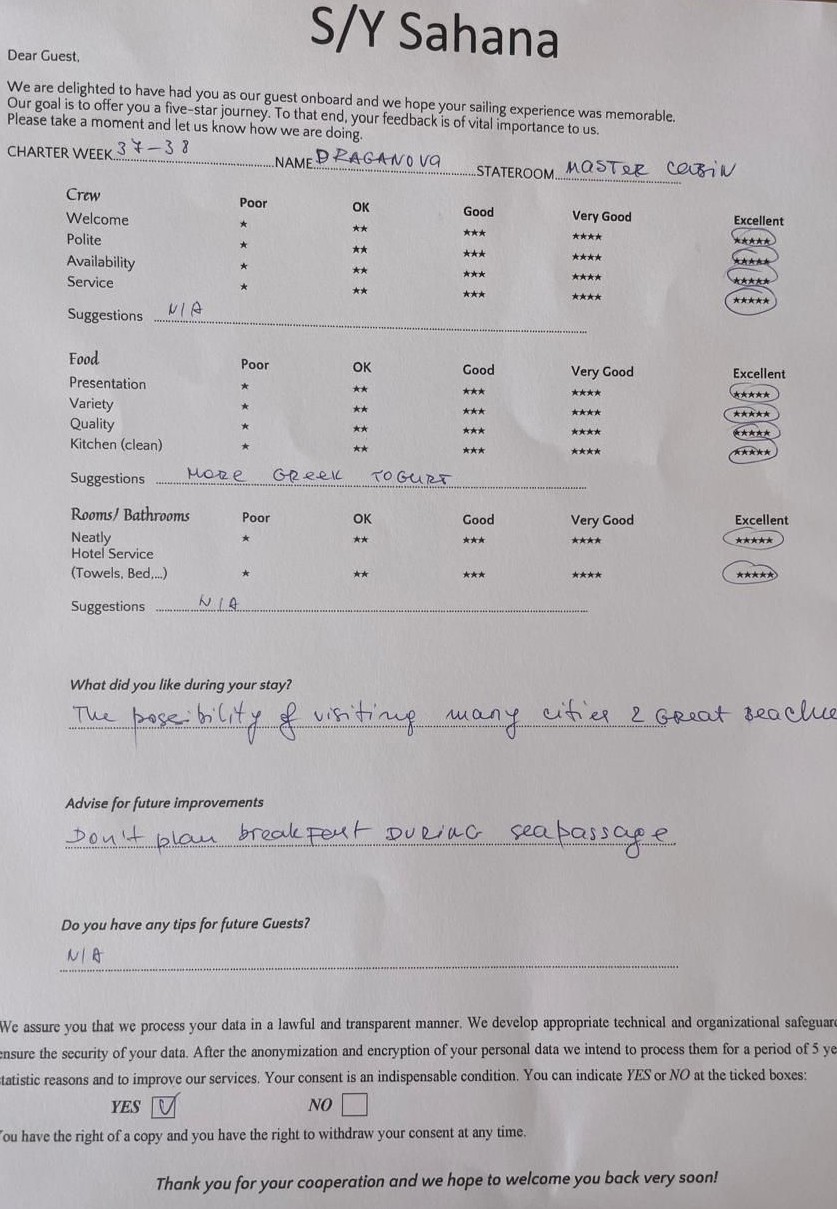 S/Y Sahana
Dear Guest,
We are delighted to have had you as our guest onboard and we hope your sailing experience was memorable.
Our goal is to offer you a five-star journey. To that end, your feedback is of vital importance to us.
Please take a moment and let us know how we are doing.
CHARTER WEEK 37-38 NAME DRAGANOVA STATEROOM MASTER CABIN
Crew Poor OK Good Very Good Excellent
Welcome ★ ★★ ★★★ ★★★★ ★★★★★
Polite ★ ★★ ★★★ ★★★★ ★★★★★
Availability ★ ★★ ★★★ ★★★★ ★★★★★
Service ★ ★★ ★★★ ★★★★ ★★★★★
Suggestions N/A
Food Poor OK Good Very Good Excellent
Presentation ★ ★★ ★★★ ★★★★ ★★★★★
Variety ★ ★★ ★★★ ★★★★ ★★★★★
Quality ★ ★★ ★★★ ★★★★ ★★★★★
Kitchen (clean) ★ ★★ ★★★ ★★★★ ★★★★★
Suggestions MORE GREEK YOGURT
Rooms/ Bathrooms Poor OK Good Very Good Excellent
Neatly ★ ★★ ★★★ ★★★★ ★★★★★
Hotel Service
(Towels, Bed,...) ★ ★★ ★★★ ★★★★ ★★★★★
Suggestions N/A
What did you like during your stay?
The possibility of visiting many cities & GREAT Beache
Advise for future improvements
Don't plan breakfast DURING seapassage
Do you have any tips for future Guests?
N/A
We assure you that we process your data in a lawful and transparent manner. We develop appropriate technical and organizational safeguar
ensure the security of your data. After the anonymization and encryption of your personal data we intend to process them for a period of 5 ye
statistic reasons and to improve our services. Your consent is an indispensable condition. You can indicate YES or NO at the ticked boxes:
YES ☑ NO ☐
You have the right of a copy and you have the right to withdraw your consent at any time.
Thank you for your cooperation and we hope to welcome you back very soon!